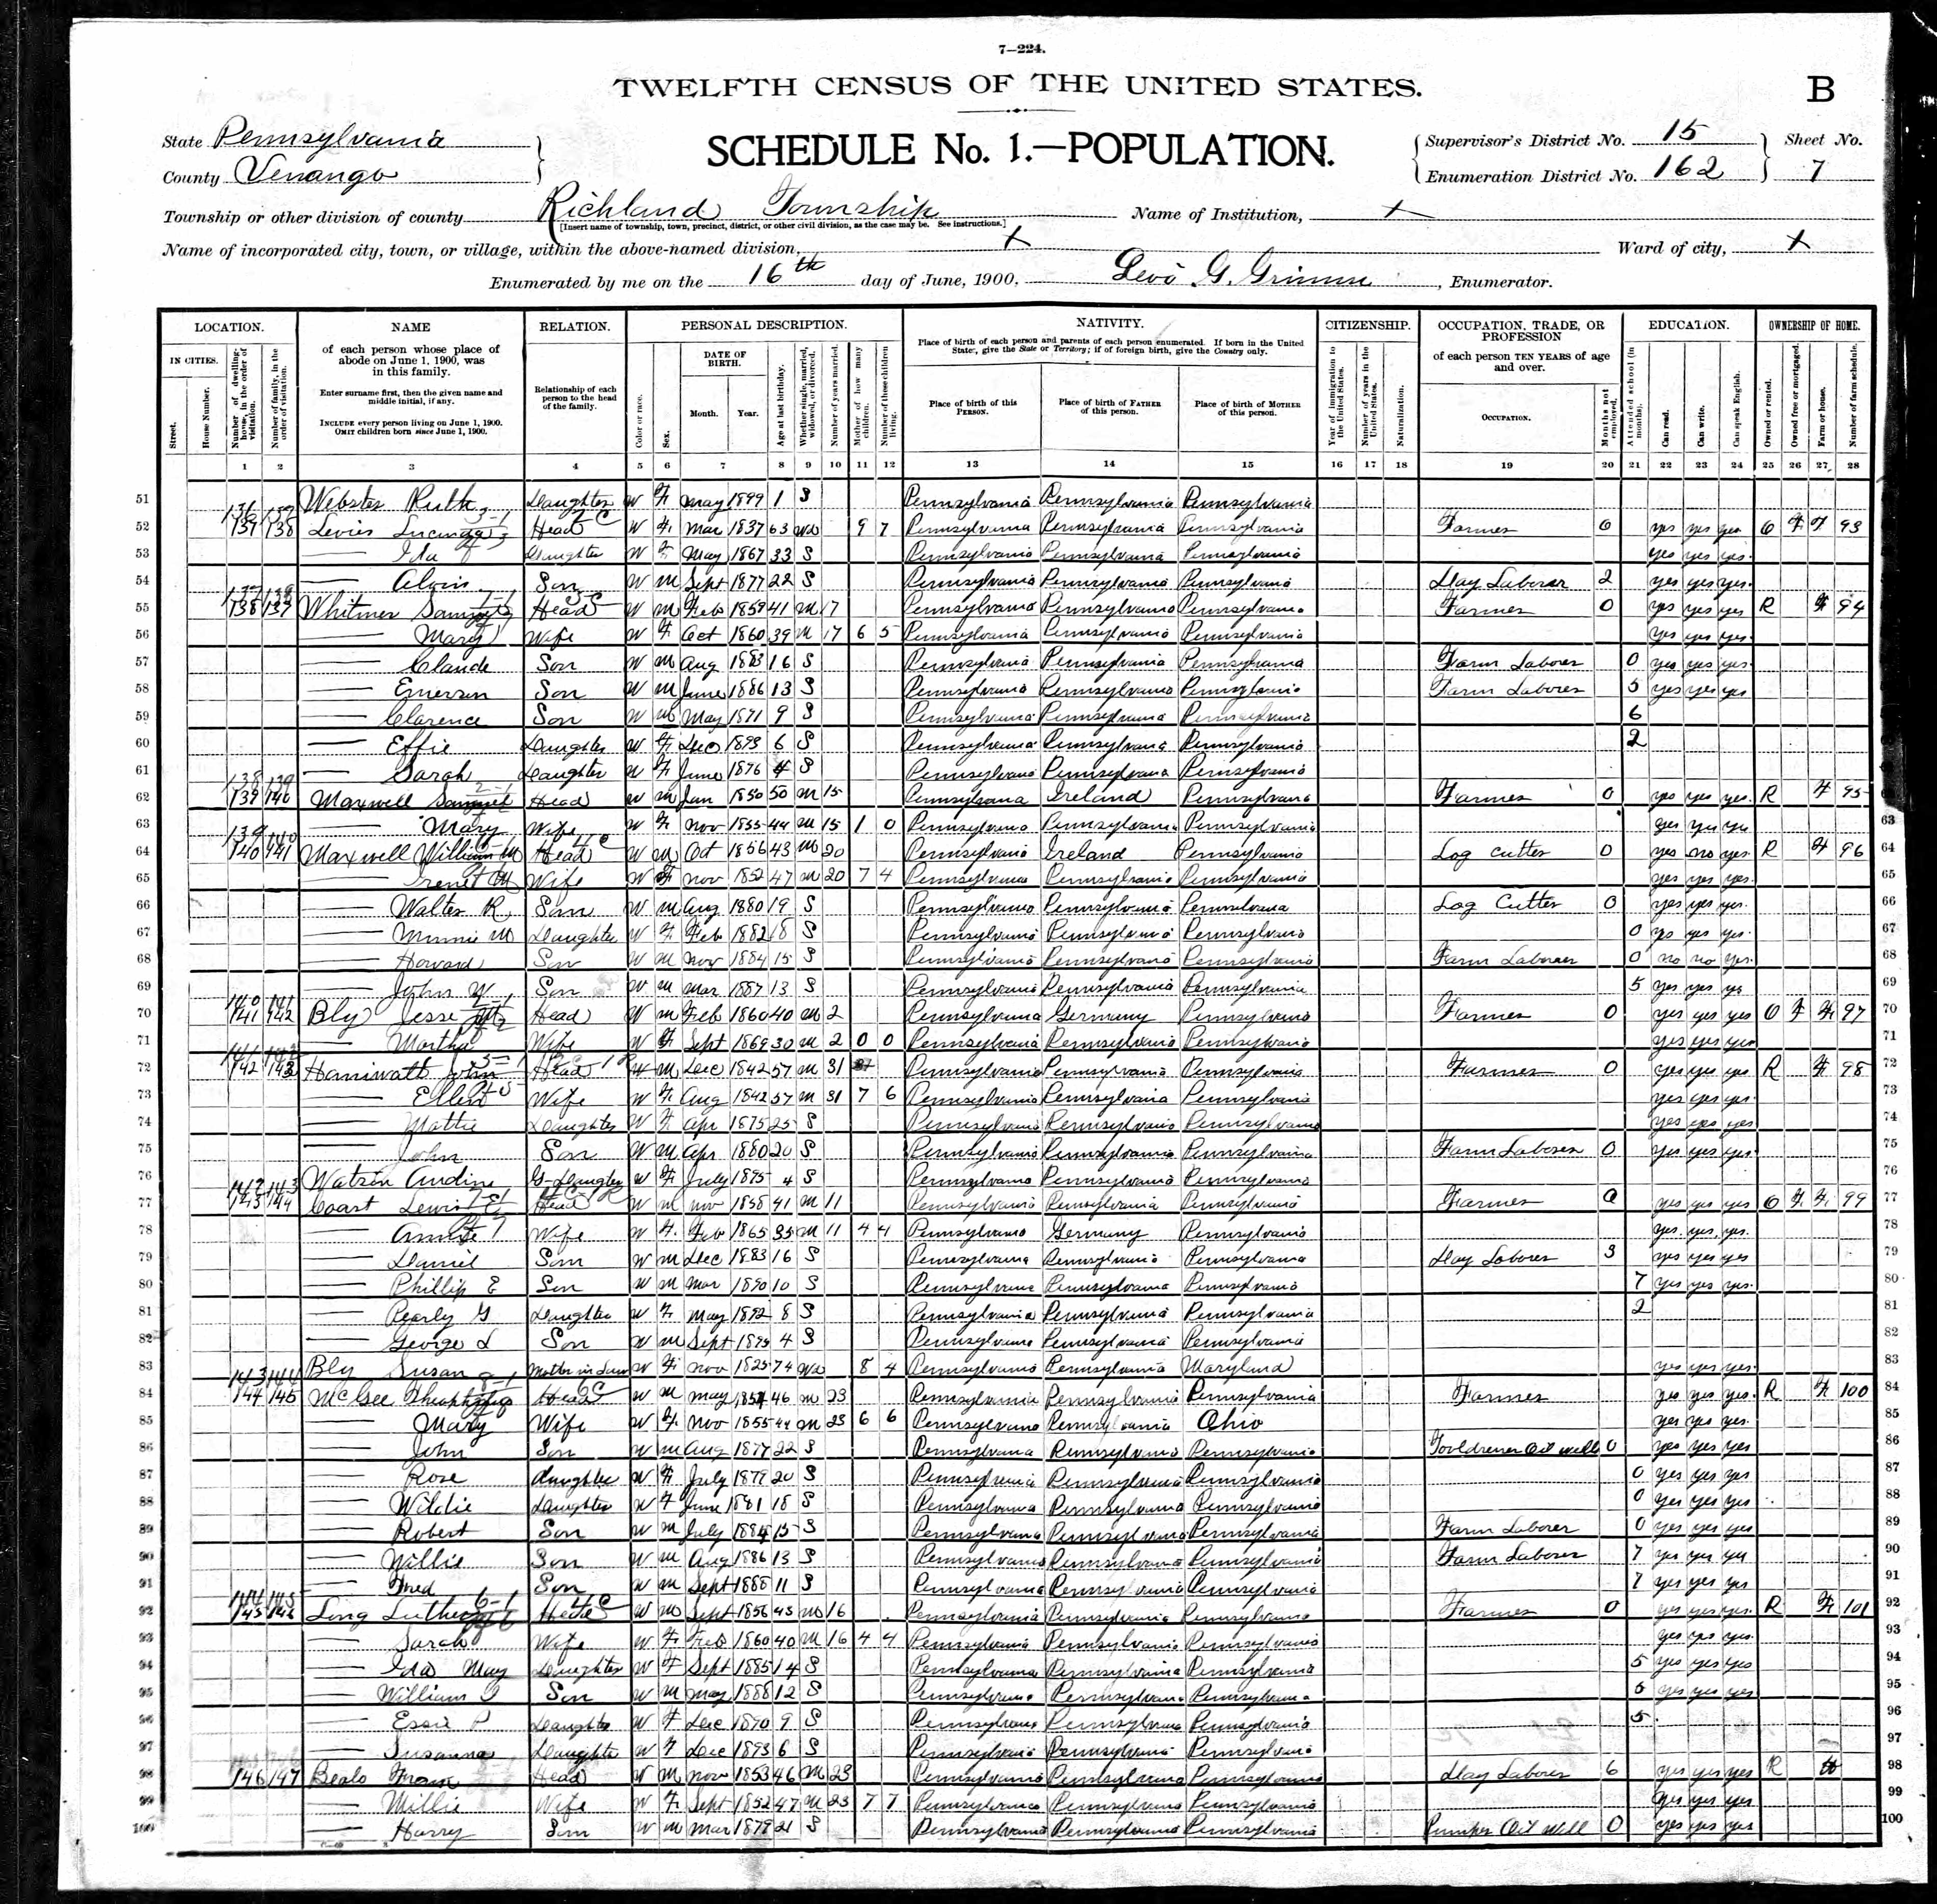 7—224.
TWELFTH CENSUS OF THE UNITED STATES.
B
State Pennsylvania
County Venango
SCHEDULE No. 1.—POPULATION.
Supervisor's District No. 15
Enumeration District No. 162
Sheet No.
7
Township or other division of county Richland Township
[Insert name of township, town, precinct, district, or other civil division, as the case may be. See instructions.]
Name of Institution, X
Name of incorporated city, town, or village, within the above-named division, X
Ward of city, X
Enumerated by me on the 16th day of June, 1900, Levi G. Grimm, Enumerator.
LOCATION. NAME RELATION. PERSONAL DESCRIPTION. NATIVITY. CITIZENSHIP. OCCUPATION, TRADE, OR PROFESSION EDUCATION. OWNERSHIP OF HOME.
IN CITIES. Street. House Number. Number of dwelling-house, in the order of visitation. Number of family, in the order of visitation.
of each person whose place of abode on June 1, 1900, was in this family.
Enter surname first, then the given name and middle initial, if any.
INCLUDE every person living on June 1, 1900. OMIT children born since June 1, 1900.
Relationship of each person to the head of the family.
Color or race. Sex. DATE OF BIRTH. Month. Year. Age at last birthday. Whether single, married, widowed, or divorced. Number of years married. Mother of how many children. Number of these children living.
Place of birth of each person and parents of each person enumerated. If born in the United States, give the State or Territory; if of foreign birth, give the Country only.
Place of birth of this PERSON. Place of birth of FATHER of this person. Place of birth of MOTHER of this person.
Year of immigration to the United States. Number of years in the United States. Naturalization.
of each person TEN YEARS of age and over.
OCCUPATION. Months not employed.
Attended school (in months). Can read. Can write. Can speak English.
Owned or rented. Owned free or mortgaged. Farm or house. Number of farm schedule.
1 2 3 4 5 6 7 8 9 10 11 12 13 14 15 16 17 18 19 20 21 22 23 24 25 26 27 28
51 Webster Ruth Daughter W F May 1899 1 S Pennsylvania Pennsylvania Pennsylvania
52 137 138 Levier Head W F Mar 1837 63 Wd 9 7 Pennsylvania Pennsylvania Pennsylvania Farmer 0 yes yes yes O F F 93
53 Ida Daughter W F May 1867 33 S Pennsylvania Pennsylvania Pennsylvania yes yes yes
54 Alvin Son W M Sept 1877 22 S Pennsylvania Pennsylvania Pennsylvania Day Laborer 2 yes yes yes
55 138 139 Whitmer Samuel Head W M Feb 1859 41 M 17 Pennsylvania Pennsylvania Pennsylvania Farmer 0 yes yes yes R F 94
56 Mary Wife W F Oct 1860 39 M 17 6 5 Pennsylvania Pennsylvania Pennsylvania yes yes yes
57 Claude Son W M Aug 1883 16 S Pennsylvania Pennsylvania Pennsylvania Farm Laborer 0 yes yes yes
58 Emerson Son W M June 1886 13 S Pennsylvania Pennsylvania Pennsylvania Farm Laborer 5 yes yes yes
59 Clarence Son W M May 1891 9 S Pennsylvania Pennsylvania Pennsylvania 6
60 Effie Daughter W F Dec 1893 6 S Pennsylvania Pennsylvania Pennsylvania 2
61 Sarah Daughter W F June 1896 4 S Pennsylvania Pennsylvania Pennsylvania
62 139 140 Maxwell Samuel Head W M Jan 1850 50 M 15 Pennsylvania Ireland Pennsylvania Farmer 0 yes yes yes R F 95
63 Mary Wife W F Nov 1855 44 M 15 1 0 Pennsylvania Pennsylvania Pennsylvania yes yes yes 63
64 140 141 Maxwell William M Head W M Oct 1856 43 M 20 Pennsylvania Ireland Pennsylvania Log Cutter 0 yes no yes R F 96 64
65 Irene M Wife W F Nov 1852 47 M 20 7 4 Pennsylvania Pennsylvania Pennsylvania yes yes yes 65
66 Walter R Son W M Aug 1880 19 S Pennsylvania Pennsylvania Pennsylvania Log Cutter 0 yes yes yes 66
67 Minnie M Daughter W F Feb 1882 18 S Pennsylvania Pennsylvania Pennsylvania 0 yes yes yes 67
68 Howard Son W M Nov 1884 15 S Pennsylvania Pennsylvania Pennsylvania Farm Laborer 0 no no yes 68
69 John W Son W M Mar 1887 13 S Pennsylvania Pennsylvania Pennsylvania 5 yes yes yes 69
70 141 142 Bly Jesse Head W M Feb 1860 40 M 2 Pennsylvania Germany Pennsylvania Farmer 0 yes yes yes O F F 97 70
71 Martha Wife W F Sept 1869 30 M 2 0 0 Pennsylvania Pennsylvania Pennsylvania yes yes yes 71
72 142 143 John Head W M Dec 1842 57 M 31 Pennsylvania Pennsylvania Pennsylvania Farmer 0 yes yes yes R F 98 72
73 Ellen Wife W F Aug 1842 57 M 31 7 6 Pennsylvania Pennsylvania Pennsylvania yes yes yes 73
74 Mattie Daughter W F Apr 1875 25 S Pennsylvania Pennsylvania Pennsylvania yes yes yes 74
75 John Son W M Apr 1880 20 S Pennsylvania Pennsylvania Pennsylvania Farm Laborer 0 yes yes yes 75
76 Watson G-Daughter W F July 1895 4 S Pennsylvania Pennsylvania Pennsylvania 76
77 143 144 Coast Lewis Head W M Nov 1858 41 M 11 Pennsylvania Pennsylvania Pennsylvania Farmer 0 yes yes yes O F F 99 77
78 Annie Wife W F Feb 1865 35 M 11 4 4 Pennsylvania Germany Pennsylvania yes yes yes 78
79 Daniel Son W M Dec 1883 16 S Pennsylvania Pennsylvania Pennsylvania Day Laborer 3 yes yes yes 79
80 Phillip E Son W M Mar 1890 10 S Pennsylvania Pennsylvania Pennsylvania 7 yes yes yes 80
81 Pearly G Daughter W F May 1892 8 S Pennsylvania Pennsylvania Pennsylvania 2 81
82 George L Son W M Sept 1895 4 S Pennsylvania Pennsylvania Pennsylvania 82
83 Bly Susan Mother in Law W F Nov 1825 74 Wd 8 4 Pennsylvania Pennsylvania Maryland yes yes yes 83
84 144 145 McGee Head W M May 1854 46 M 23 Pennsylvania Pennsylvania Pennsylvania Farmer yes yes yes R F 100 84
85 Mary Wife W F Nov 1855 44 M 23 6 6 Pennsylvania Pennsylvania Ohio yes yes yes 85
86 John Son W M Aug 1877 22 S Pennsylvania Pennsylvania Pennsylvania Tooldresser Oil Well 0 yes yes yes 86
87 Rose Daughter W F July 1879 20 S Pennsylvania Pennsylvania Pennsylvania 0 yes yes yes 87
88 Wildie Daughter W F June 1881 18 S Pennsylvania Pennsylvania Pennsylvania 0 yes yes yes 88
89 Robert Son W M July 1884 15 S Pennsylvania Pennsylvania Pennsylvania Farm Laborer 0 yes yes yes 89
90 Willie Son W M Aug 1886 13 S Pennsylvania Pennsylvania Pennsylvania Farm Laborer 7 yes yes yes 90
91 Fred Son W M Sept 1888 11 S Pennsylvania Pennsylvania Pennsylvania 7 yes yes yes 91
92 145 146 Long Luther Head W M Sept 1856 43 M 16 Pennsylvania Pennsylvania Pennsylvania Farmer 0 yes yes yes R F 101 92
93 Sarah Wife W F Feb 1860 40 M 16 4 4 Pennsylvania Pennsylvania Pennsylvania yes yes yes 93
94 Ida May Daughter W F Sept 1885 14 S Pennsylvania Pennsylvania Pennsylvania 5 yes yes yes 94
95 William Son W M May 1888 12 S Pennsylvania Pennsylvania Pennsylvania 5 yes yes yes 95
96 Essie P Daughter W F Dec 1890 9 S Pennsylvania Pennsylvania Pennsylvania 5 96
97 Susanna Daughter W F Dec 1893 6 S Pennsylvania Pennsylvania Pennsylvania 97
98 146 147 Beals Head W M Nov 1853 46 M 23 Pennsylvania Pennsylvania Pennsylvania Day Laborer 6 yes yes yes R H 98
99 Millie Wife W F Sept 1852 47 M 23 7 7 Pennsylvania Pennsylvania Pennsylvania yes yes yes 99
100 Harry Son W M Mar 1879 21 S Pennsylvania Pennsylvania Pennsylvania Pumper Oil Well 0 yes yes yes 100